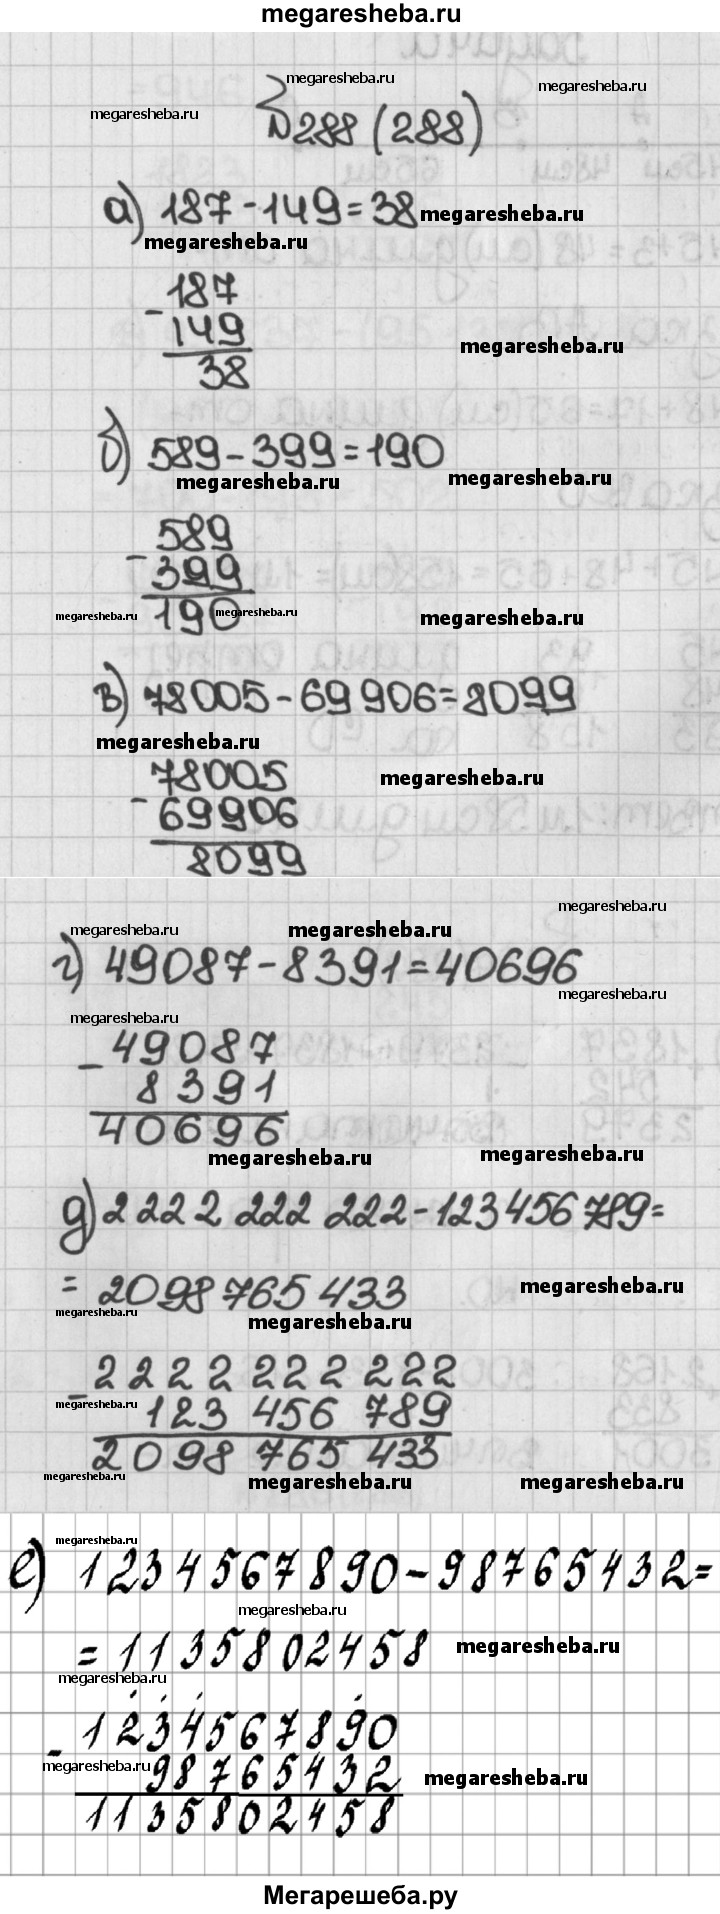 megaresheba.ru
megaresheba.ru
megaresheba.ru
megaresheba.ru
№288 (288)
а) 187-149=38
megaresheba.ru
megaresheba.ru
- 187
149
38
megaresheba.ru
б) 589-399=190
megaresheba.ru
megaresheba.ru
- 589
399
190
megaresheba.ru
megaresheba.ru
megaresheba.ru
в) 78005-69906=8099
megaresheba.ru
- 78005
69906
8099
megaresheba.ru
megaresheba.ru
megaresheba.ru
megaresheba.ru
г) 49087-8391=40696
megaresheba.ru
megaresheba.ru
- 49087
8391
40696
megaresheba.ru
megaresheba.ru
д) 2222 222 222-123456789=
= 2098765433
megaresheba.ru
megaresheba.ru
megaresheba.ru
- 2222 222 222
123 456 789
2098 765 433
megaresheba.ru
megaresheba.ru
megaresheba.ru
megaresheba.ru
megaresheba.ru
е) 1234567890-98765432=
megaresheba.ru
=1135802458
megaresheba.ru
megaresheba.ru
- 1234567890
98765432
1135802458
megaresheba.ru
megaresheba.ru
Мегарешеба.ру